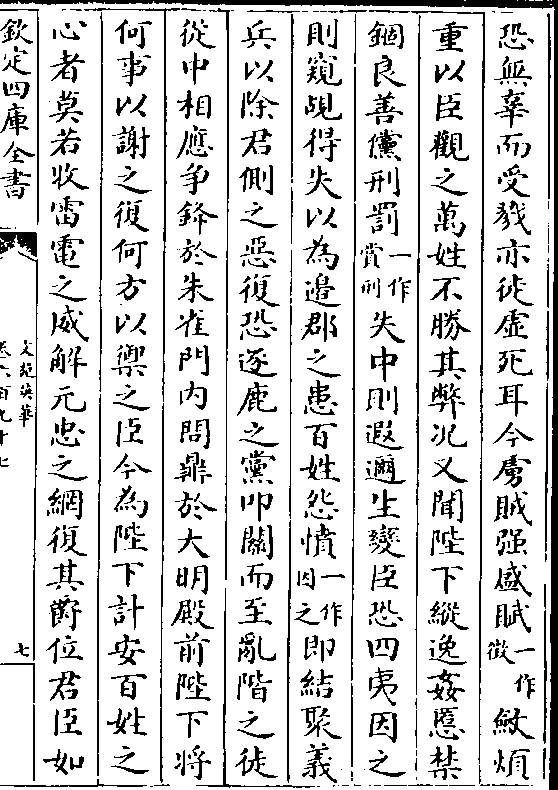 恐無辜而受戮亦徒虚死耳今虜賊强盛賦一作徴斂煩
重以臣觀之萬姓不勝其弊况又聞陛下縱逸姦慝禁
錮良善儻刑罰一作賞刑失中則遐邇生變臣恐四夷因之
則窺覘得失以為邉郡之患百姓怨憤一作因之即結聚義
兵以除君側之惡復恐逐鹿之黨叩關而至亂階之徒
從中相應争鋒於朱雀門内問鼎於大明殿前陛下将
何事以謝之復何方以禦之臣今為陛下計安百姓之
心者莫若收雷電之威解元忠之網復其爵位君臣如
欽定四庫全書
文苑英華
卷六百九十七
七